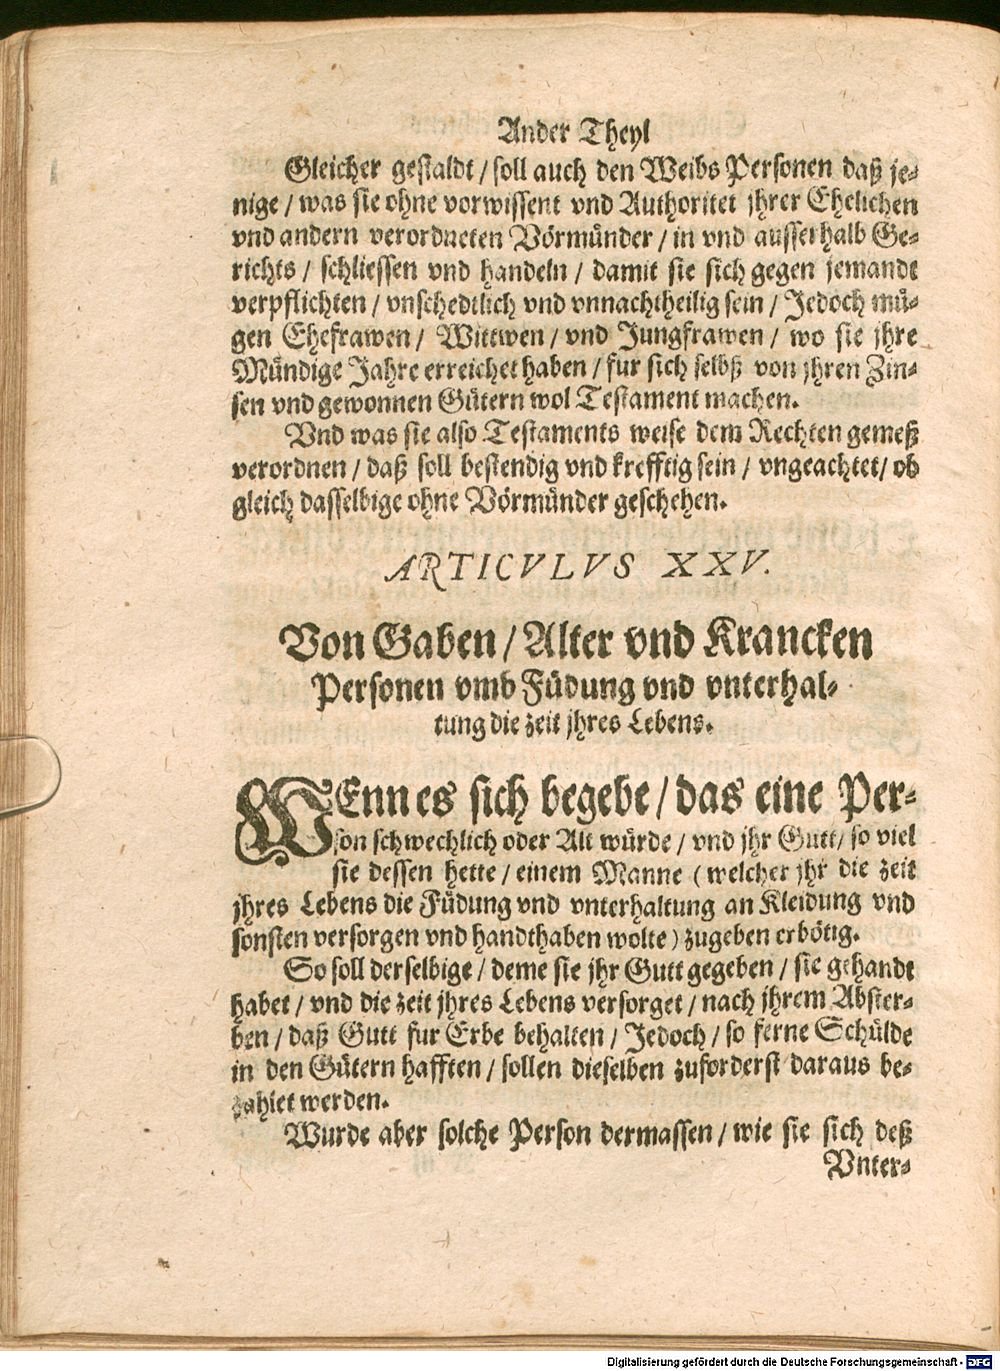 Ander Theyl
Gleicher gestaldt / soll auch den Weibs Personen daß je-
nige / was sie ohne vorwissent vnd Authoritet jhrer Ehelichen
vnd andern verordneten Vörmünder / in vnd ausserhalb Ge-
richts / schliessen vnd handeln / damit sie sich gegen jemandt
verpflichten / vnschedtlich vnd vnnachtheilig sein / Jedoch mü-
gen Ehefrawen / Wittwen / vnd Jungfrawen / wo sie jhre
Mündige Jahre erreichet haben / fur sich selbß von jhren Zin-
sen vnd gewonnen Gütern wol Testament machen.
Vnd was sie also Testaments weise dem Rechten gemeß
verordnen / daß soll bestendig vnd krefftig sein / vngeachtet / ob
gleich dasselbige ohne Vörmünder geschehen.
ARTICVLVS XXV.
Von Gaben / Alter vnd Krancken
Personen vmb Füdung vnd vnterhal-
tung die zeit jhres Lebens.
WEnn es sich begebe / das eine Per-
son schwechlich oder Alt würde / vnd jhr Gutt / so viel
sie dessen hette / einem Manne (welcher jhr die zeit
jhres Lebens die Füdung vnd vnterhaltung an Kleidung vnd
sonsten versorgen vnd handthaben wolte) zugeben erbötig.
So soll derselbige / deme sie jhr Gutt gegeben / sie gehandt
habet / vnd die zeit jhres Lebens versorget / nach jhrem Abster-
ben / daß Gutt fur Erbe behalten / Jedoch / so ferne Schülde
in den Gütern hafften / sollen dieselben zuforderst daraus be-
zahlet werden.
Wurde aber solche Person dermassen / wie sie sich deß
Vnter-
Digitalisierung gefördert durch die Deutsche Forschungsgemeinschaft - DFG